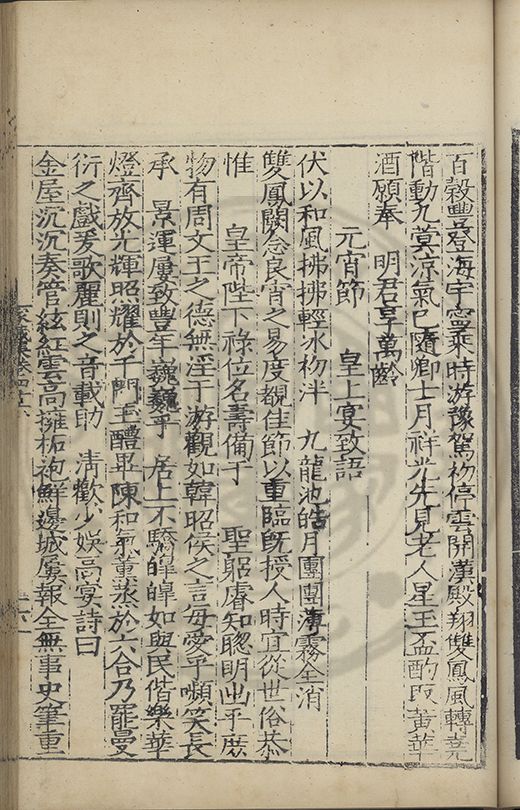 百穀豐登海宇寧乘時游豫駕初停雲開漢殿翔雙鳳風轉堯
階動九蓂涼氣已隨卿士月祥光先見老人星玉盃酌取黃華
酒願奉 明君享萬齡
元宵節 皇上宴致語
伏以和風拂拂輕冰初泮 九龍池皓月團團薄霧全消
雙鳳闕念良宵之易度覩佳節以重臨旣授人時宜從世俗恭
惟 皇帝陛下祿位名壽備于 聖躬睿知聰明出乎庶
物有周文王之德無淫于游觀如韓昭侯之言每愛乎嚬笑長
承 景運屢致豐年巍巍乎 居上不驕皞皞如與民偕樂華
燈齊放光輝照耀於千門玉醴畢陳和氣薰蒸於六合乃罷曼
衍之戲爰歌麗則之音載助 淸歡少娛高宴詩曰
金屋沉沉奏管絃紅雲高擁柘袍鮮邊城屢報全無事史筆重